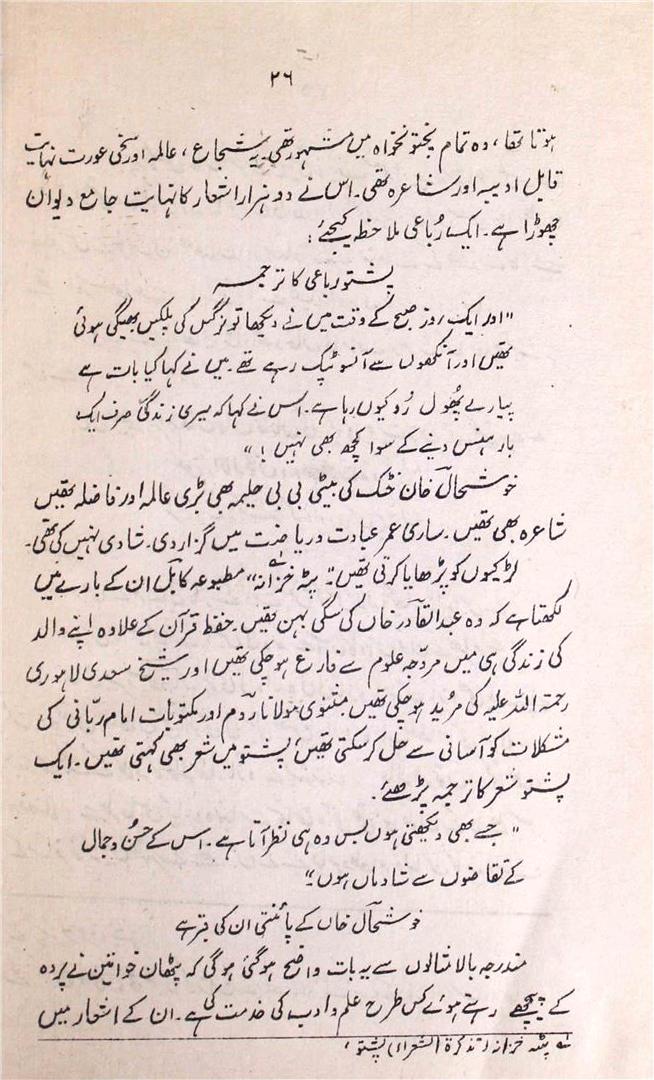 ۲۶
ہوتا تھا، وہ تمام پختونخواہ میں مشہور تھی۔ یہ شجاع، عالمہ اور سخی عورت نہایت
قابل ادیبہ اور شاعرہ تھی۔ اس نے دو ہزار اشعار کا نہایت جامع دیوان
چھوڑا ہے۔ ایک رُباعی ملاحظہ کیجئے :
پشتو رباعی کا ترجمہ
"اور ایک روز صبح کے وقت میں نے دیکھا تو نرگس کی پلکیں بھیگی ہوئی
تھیں اور آنکھوں سے آنسو ٹپک رہے تھے۔ میں نے کہا کیا بات ہے
پیارے پھُول رُو کیوں رہا ہے۔ اس نے کہا کہ میری زندگی صرف ایک
بار ہنس دینے کے سوا کچھ بھی نہیں !"
خوشحال خان خٹک کی بیٹی بی بی حلیمہ بھی بڑی عالمہ اور فاضلہ تھیں
شاعرہ بھی تھیں۔ ساری عمر عبادت و ریاضت میں گزار دی۔ شادی نہیں کی تھی۔
لڑکیوں کو پڑھایا کرتی تھیں۔ "پٹہ خزانہ" مطبوعہ کابل ان کے بارے میں
لکھتا ہے کہ وہ عبدالقادر خاں کی سگی بہن تھیں۔ حفظ قرآن کے علاوہ اپنے والد
کی زندگی ہی میں مروّجہ علوم سے فارغ ہو چکی تھیں اور شیخ سعدی لاہوری
رحمتہ اللہ علیہ کی مُرید ہو چکی تھیں مثنوی مولانا روم اور مکتوبات امام ربّانی کی
مشکلات کو آسانی سے حل کر سکتی تھیں، پشتو میں شعر بھی کہتی تھیں۔ ایک
پشتو شعر کا ترجمہ پڑھئے :
"جسے بھی دیکھتی ہوں بس وہ ہی نظر آتا ہے۔ اس کے حُسن و جمال
کے تقاضوں سے شاداں ہوں۔"
خوشحال خاں کے پائنتی ان کی قبر ہے
مندرجہ بالا مثالوں سے یہ بات واضح ہو گئی ہو گی کہ پٹھان خواتین نے پردہ
کے پیچھے رہتے ہوئے کس طرح علم و ادب کی خدمت کی ہے۔ ان کے اشعار میں
لہ پٹہ خزانہ (تذکرۃ الشعراء) پشتو ،